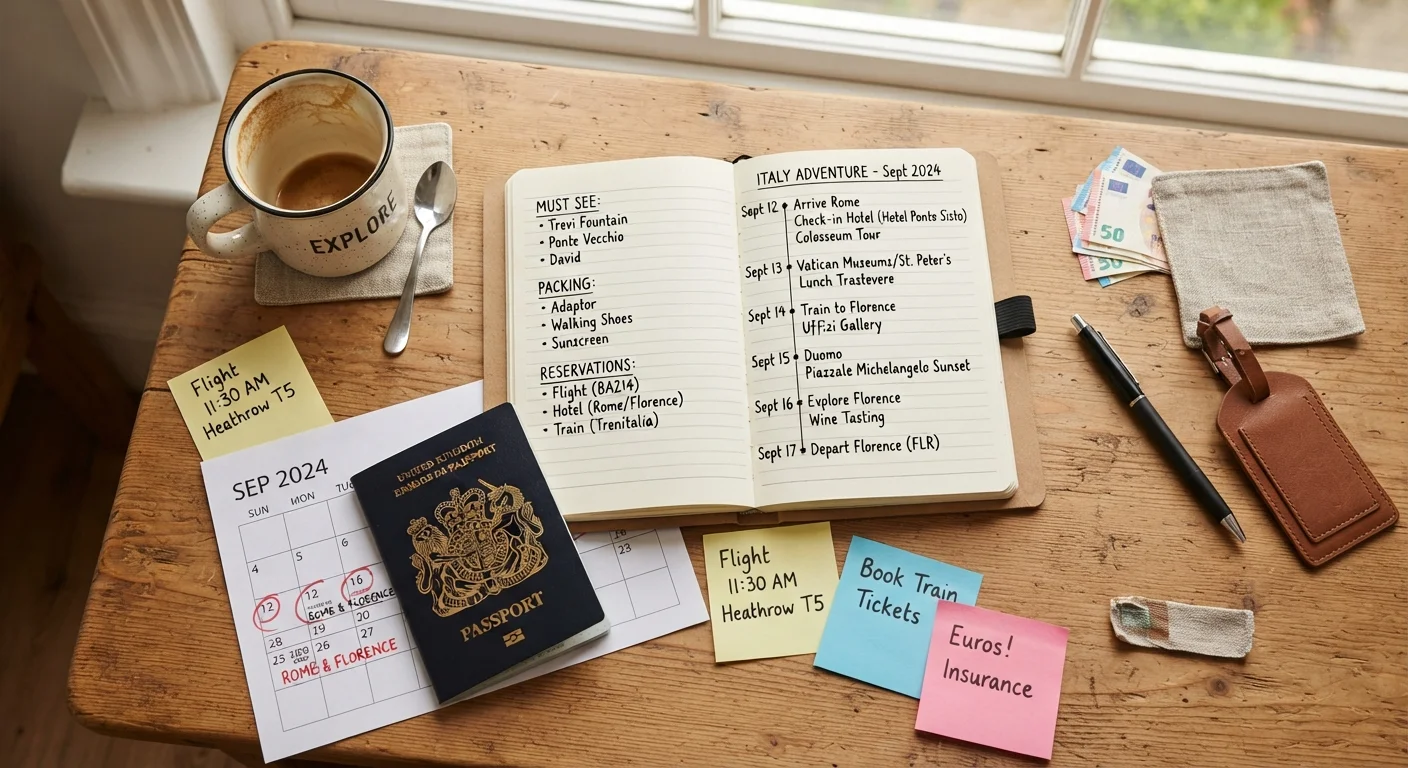 EXPLORE
Flight
11:30 AM
Heathrow T5
SEP 2024
SUN MON
4 5 6
12 12 16
ROME & FLORENCE
28 19 20
25 26 27
ROME & FLORENCE
23
UNITED KINGDOM
PASSPORT
MUST SEE:
• Trevi Fountain
• Ponte Vecchio
• David
PACKING:
• Adaptor
• Walking Shoes
• Sunscreen
RESERVATIONS:
• Flight (BA214)
• Hotel (Rome/Florence)
• Train (Trenitalia)
ITALY ADVENTURE - Sept 2024
Sept 12 Arrive Rome
Check-in Hotel (Hotel Ponte Sisto)
Colosseum Tour
Sept 13 Vatican Museums/St. Peter's
Lunch Trastevere
Sept 14 Train to Florence
Uffizi Gallery
Sept 15 Duomo
Piazzale Michelangelo Sunset
Sept 16 Explore Florence
Wine Tasting
Sept 17 Depart Florence (FLR)
50
50
Flight
11:30 AM
Heathrow T5
Book Train
Tickets
Euros!
Insurance